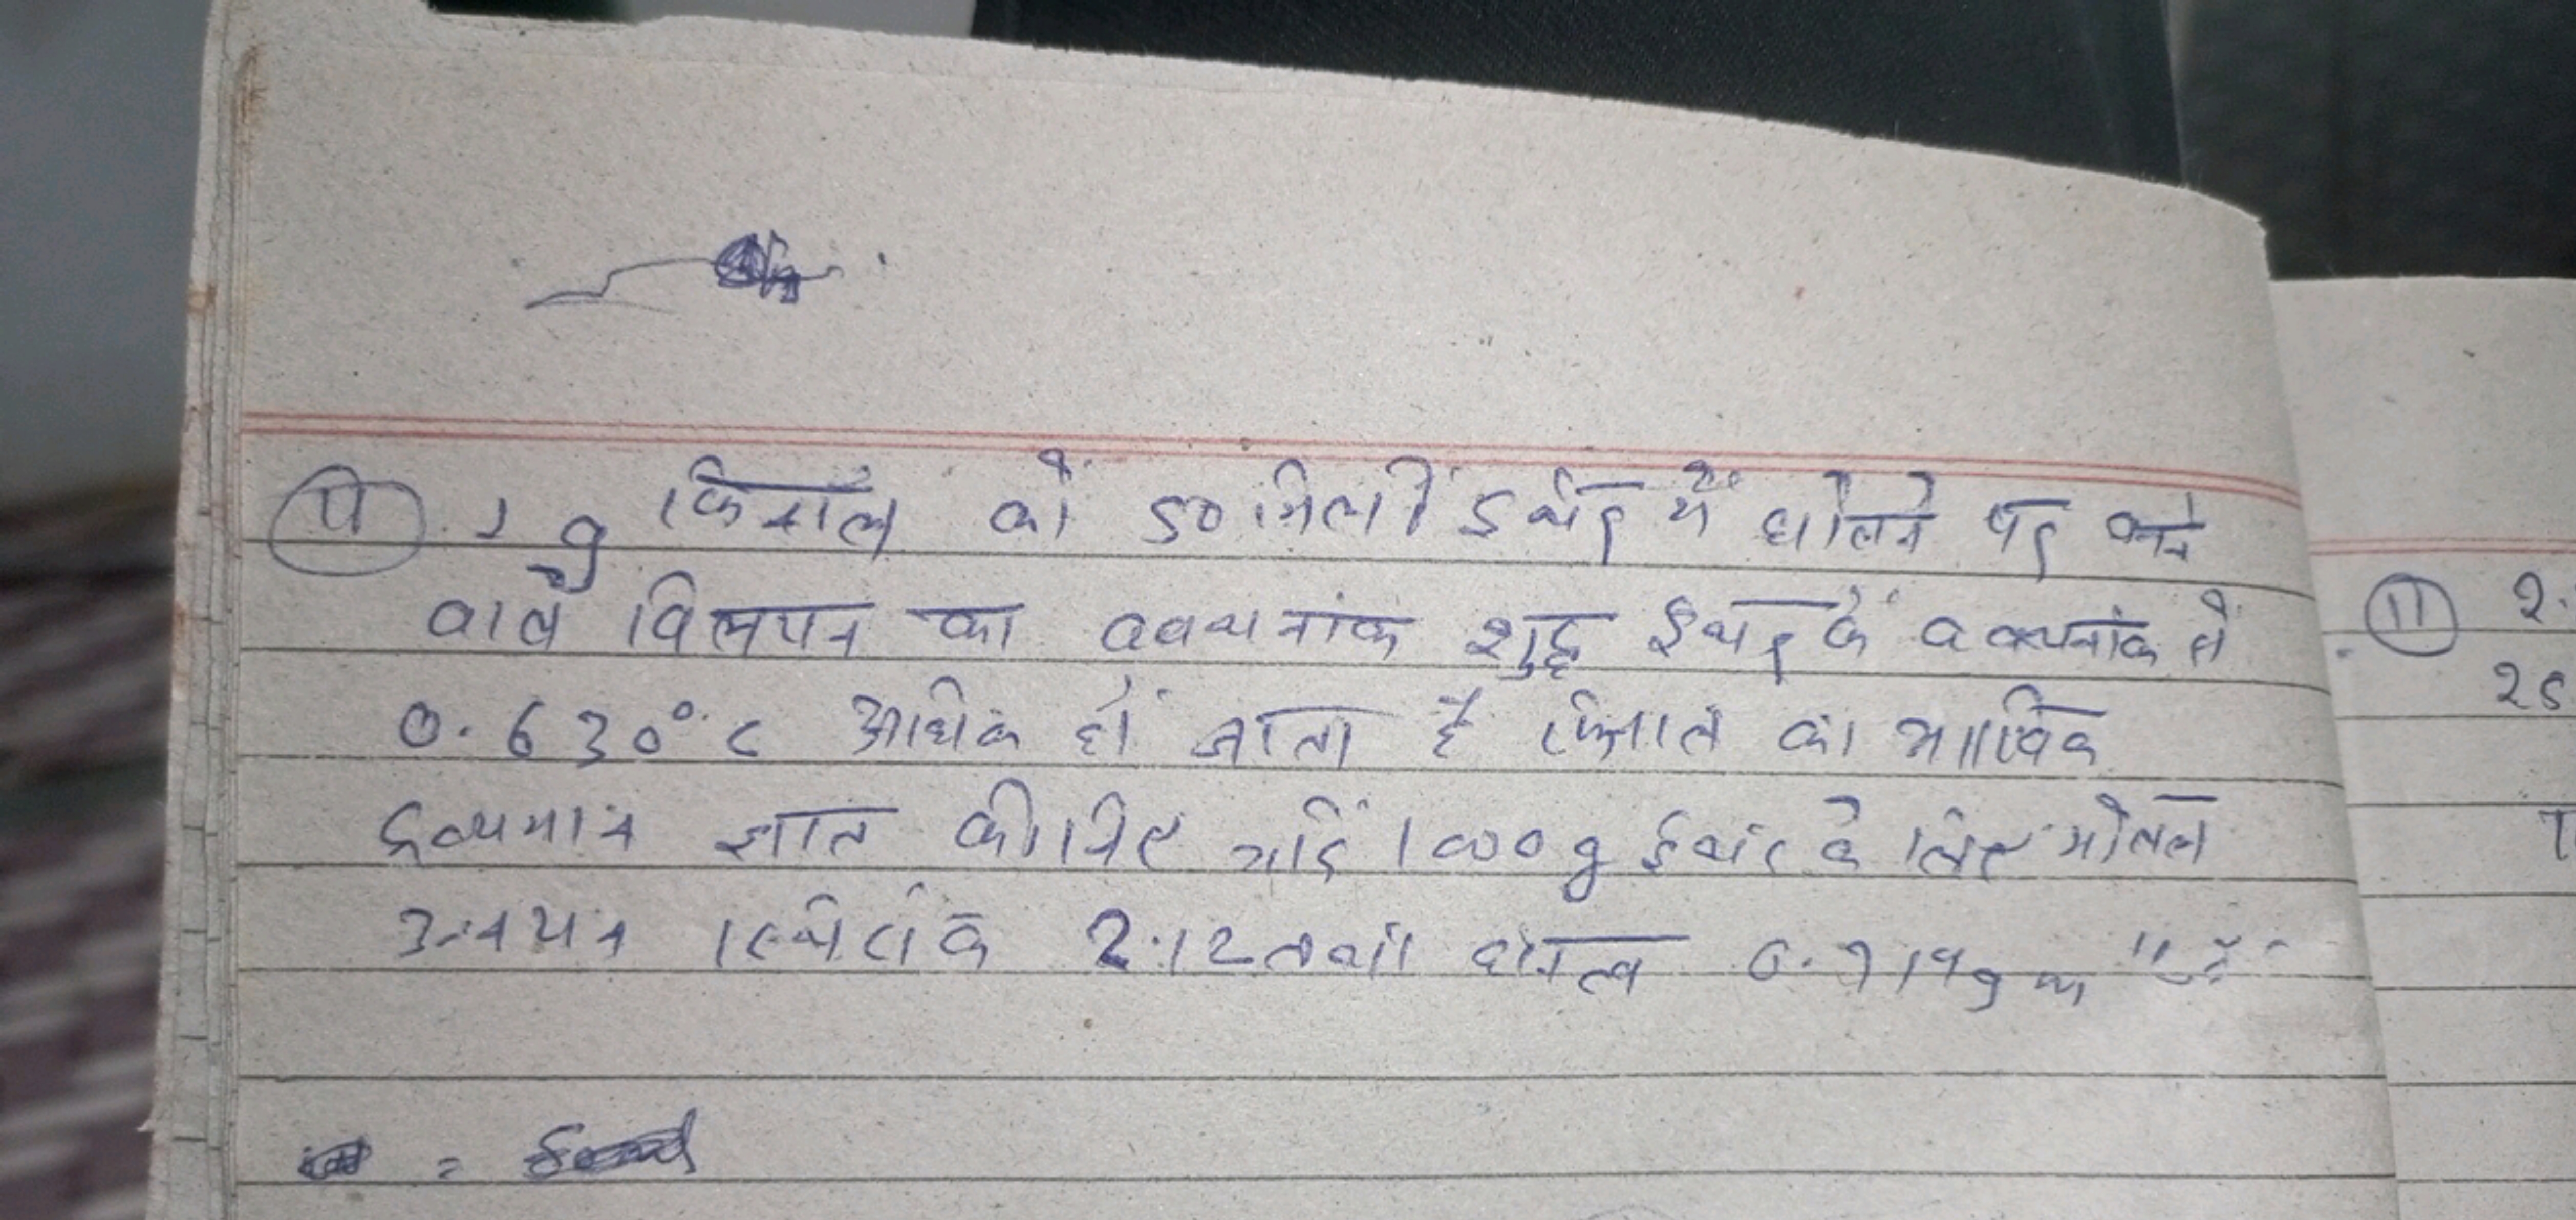 1 g फिनॉल को 50 मिली ईथर में घोलने पर बनने
वाले विलयन का क्वथनांक शुद्ध ईथर के क्वथनांक से
0.630°C अधिक हो जाता है फिनाल का आण्विक
द्रव्यमान ज्ञात कीजिए यदि 1000 g ईथर के लिए मोलल
उन्नयन स्थिरांक 2.12 तथा घनत्व
11 2.
25
T
=